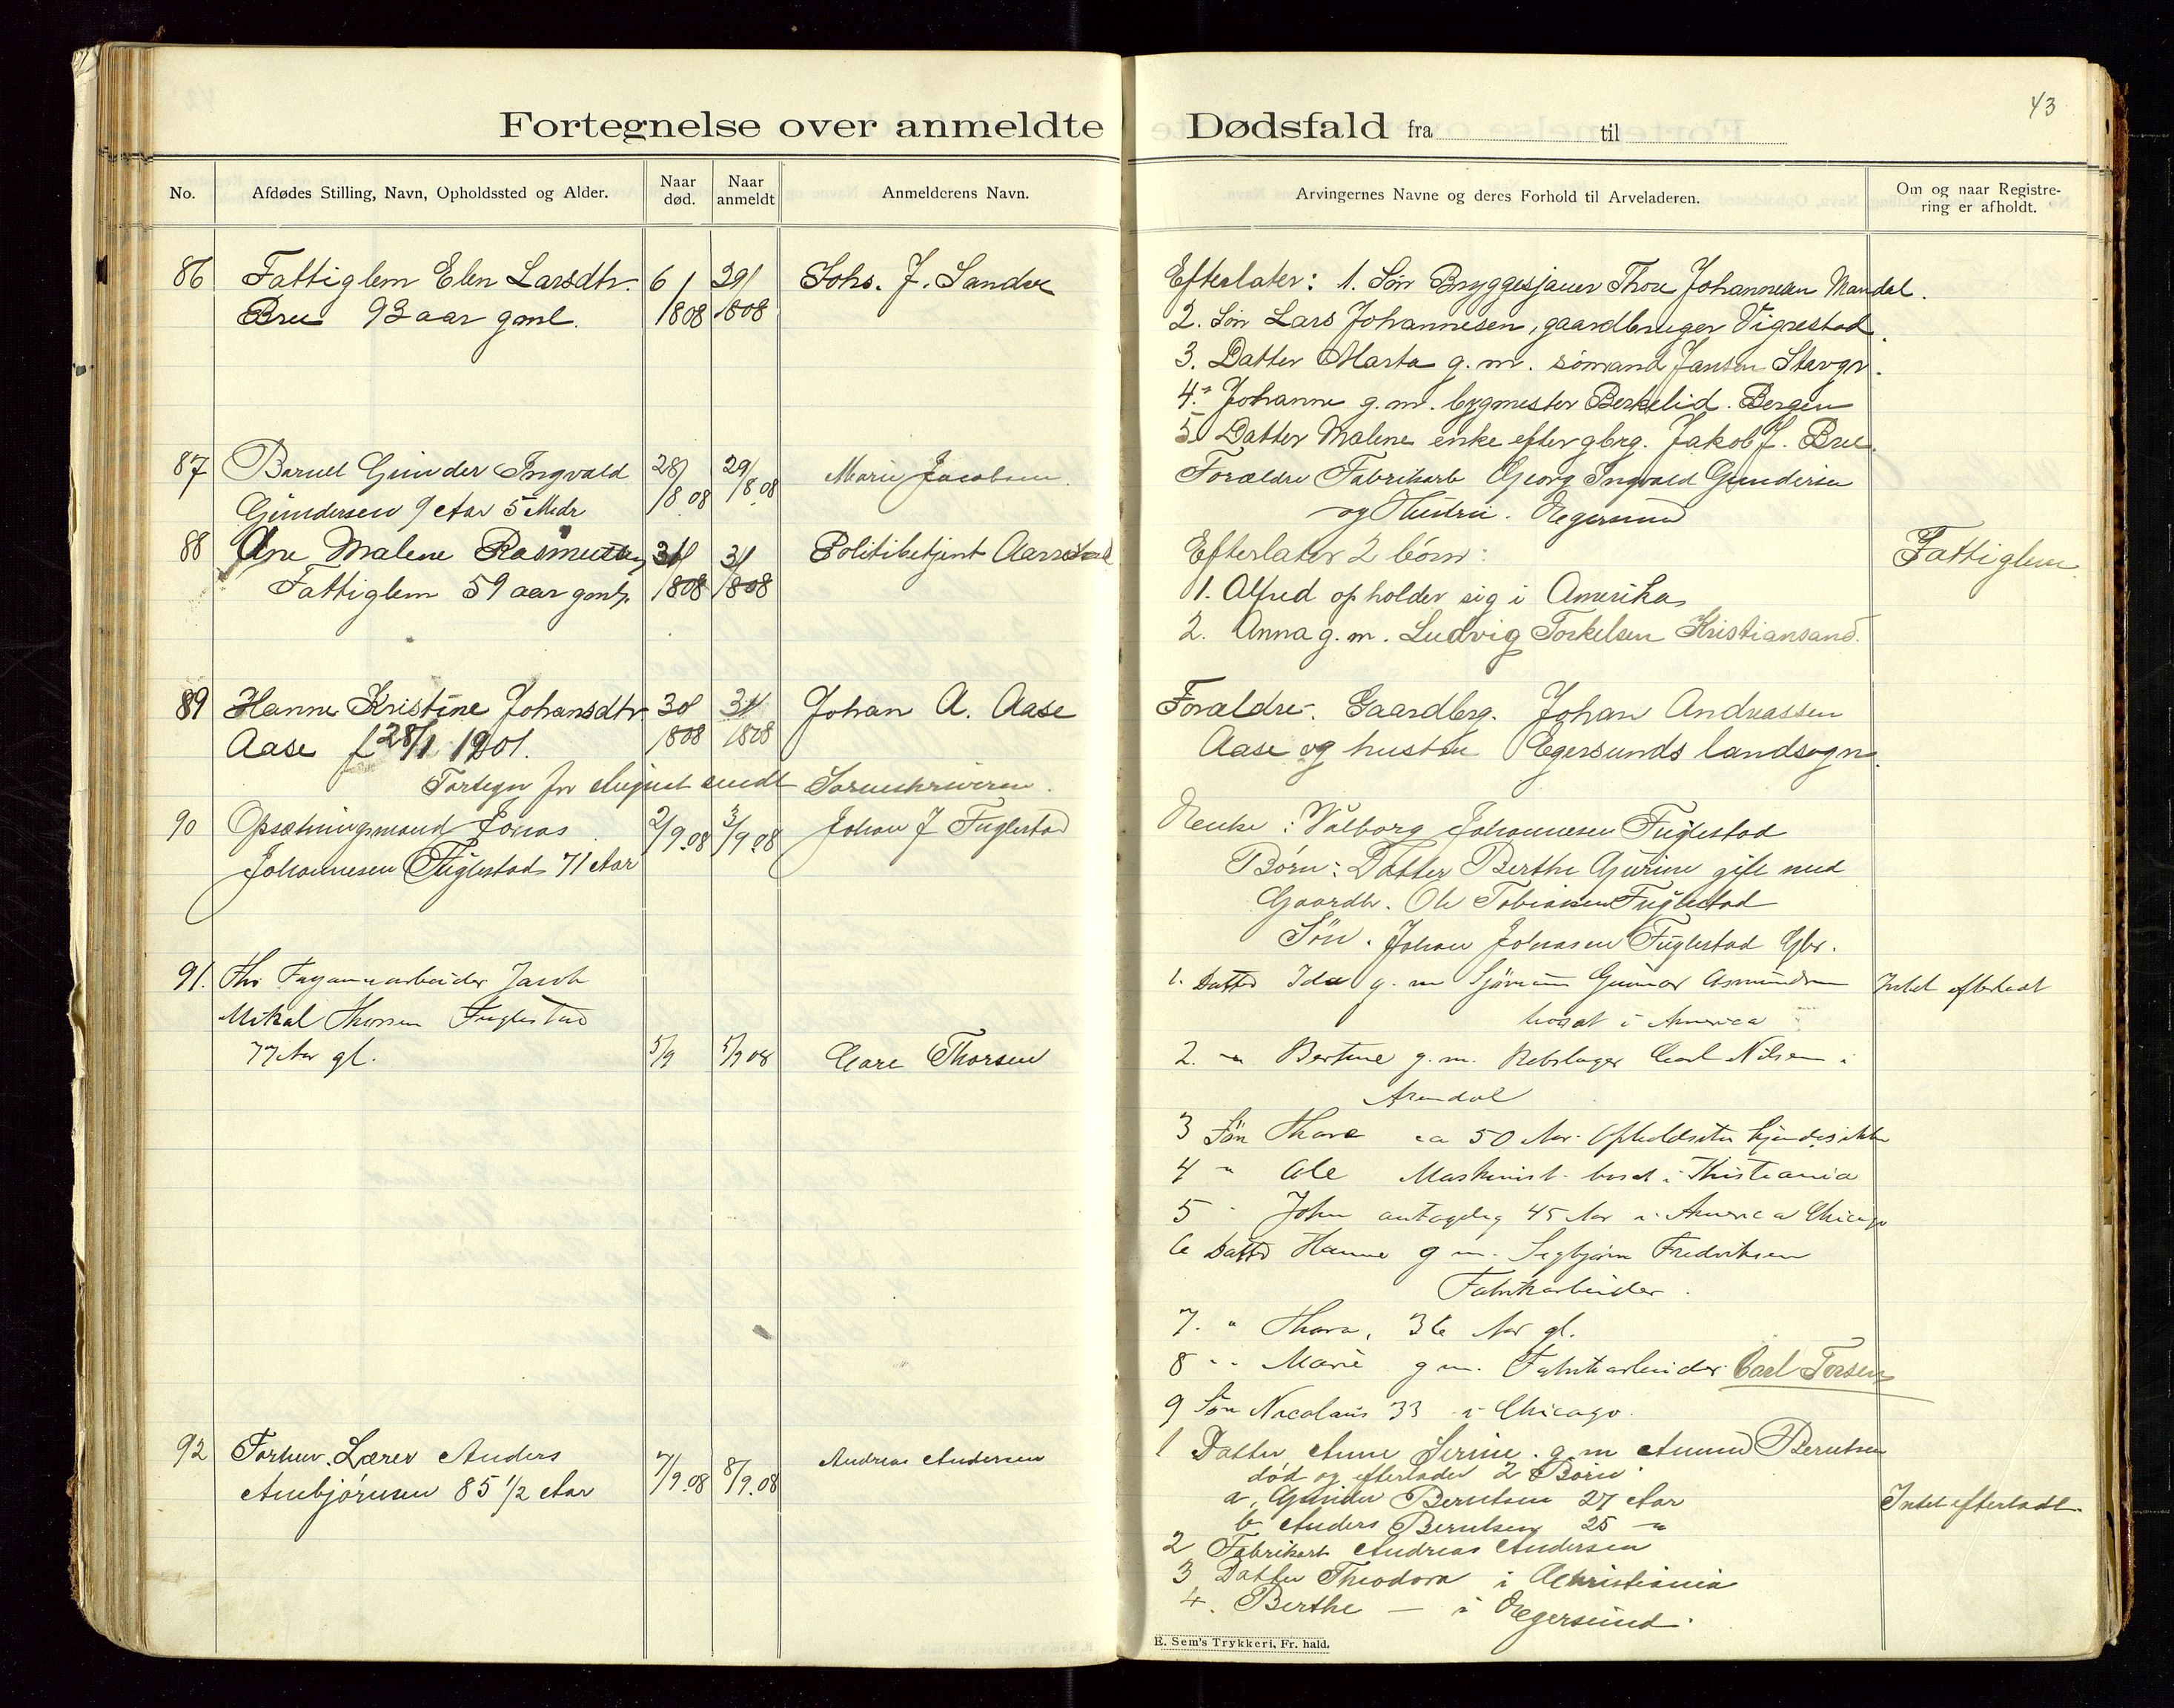 43
Fortegnelse over anmeldte Dødsfald fra til
No.
Afdødes Stilling, Navn, Opholdssted og Alder.
Naar død.
Naar anmeldt
Anmelderens Navn.
Arvingernes Navne og deres Forhold til Arveladeren.
Om og naar Registre-
ring er afholdt.
86 Fattiglem Elen Larsdtr. 6/ 29/ Johs. J. Sandve
Bru 93 aar gml. /8 08 /8 08
Efterlater: 1. Søn Bryggesjauer Thore Johannesen Mandal.
2. Søn Lars Johannesen, gaardbruger Vigrestad.
3. Datter Marta g. m. sømand Jansen Stavgr.
4. " Johanne g. m. bygmester Berkelid. Bergen
5. Datter Malene enke efter gbrg. Jakob J. Bru.
87 Barnet Gunder Ingvald 28/ 29/ Marie Jacobsen.
Gundersen 9 Aar 5 Mdr /8 08 /8 08
Forældre Fabrikarb Georg Ingvald Gundersen
og Hustru. Egersund
88 Ane Malene Rasmusen 31/ 31/ Politibetjent Aarrestad
Fattiglem 59 aar gml. /8 08 /8 08
Efterlater 2 börn:
1. Alfred opholder sig i Amerika
2. Anna g. m. Ludvig Torkelsen Kristiansand.
Fattiglem
89 Hanne Kristine Johansdtr 30/ 31/ Johan A. Aase
Aase f 28/1 1901. /8 08 /8 08
Forældre. Gaardbrg. Johan Andreassen
Aase og hustru Egersunds landsogn.
Fortegn for August sendt Sorenskriveren.
90 Opsætningsmand Jonas 2/9.08 3/9.08 Johan J Fuglestad
Johannesen Fuglestad 71 Aar
Enke: Valborg Johannesen Fuglestad
Børn: Datter Berthe Gurine gift med
Gaardbr. Ole Tobiasen Fuglestad
Søn. Johan Jonasen Fuglestad Gbr.
91. Fhv Fayancearbeider Jacob
Mikal Thorsen Fuglestad
77 Aar gl. 5/9 5/9 08 Carl Thorsen
1. Datter Ida g. m Sjömand Gunnar Asmundsen
bosat i America
Intet efterladt
2. " Bertine g. m. Rebslager Carl Nilsen i
Arendal
3 Søn Thore ca 50 Aar. Opholdssted kjendes ikke
4 " Ole Maskinist bosat i Kristiania
5 " John antagelig 45 Aar i America Chicago
6 Datter Hanne g m. Sigbjørn Fredriksen
Fabrikarbeider.
7. " Thora, 36 Aar gl.
8 " Marie g m. Fabrikarbeider Carl Torsen
9 Søn Nicolaus 33 i Chicago.
92 Forhenv. Lærer Anders 7/9.08 8/9.08 Andreas Andersen
Asbjörnsen 85 1/2 Aar
1 Datter Anne Serine. g. m Amund Berntsen
død og efterlader 2 Børn.
a, Gunder Berntsen 27 Aar
b Anders Berntsen 25 "
Intet efterladt.
2 Fabrikarb Andreas Andersen
3 Datter Theodora i Christiania
4. Berthe — i Egersund.
E. Sem's Trykkeri, Fr. hald.